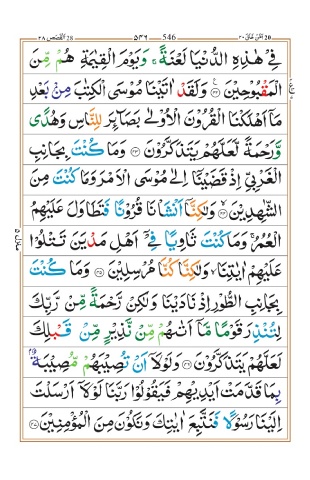 القصص ٢٨ ٥٣٦ 546 امن خلق ٢٠
فِيْ هٰذِهِ الدُّنْيَا لَعْنَةً ۚ وَيَوْمَ الْقِيٰمَةِ هُمْ مِّنَ
الْمَقْبُوْحِيْنَ ﴿٤٢﴾ وَلَقَدْ اٰتَيْنَا مُوْسَى الْكِتٰبَ مِنْ بَعْدِ
مَآ اَهْلَكْنَا الْقُرُوْنَ الْاُوْلٰى بَصَآئِرَ لِلنَّاسِ وَهُدًى
وَّرَحْمَةً لَّعَلَّهُمْ يَتَذَكَّرُوْنَ ﴿٤٣﴾ وَمَا كُنْتَ بِجَانِبِ
الْغَرْبِيِّ اِذْ قَضَيْنَآ اِلٰى مُوْسَى الْاَمْرَ وَمَا كُنْتَ مِنَ
الشّٰهِدِيْنَ ﴿٤٤﴾ وَلٰكِنَّآ اَنْشَاْنَا قُرُوْنًا فَتَطَاوَلَ عَلَيْهِمُ
الْعُمُرُ ۚ وَمَا كُنْتَ ثَاوِيًا فِيْٓ اَهْلِ مَدْيَنَ تَتْلُوْا
عَلَيْهِمْ اٰيٰتِنَا ۙ وَلٰكِنَّا كُنَّا مُرْسِلِيْنَ ﴿٤٥﴾ وَمَا كُنْتَ
بِجَانِبِ الطُّوْرِ اِذْ نَادَيْنَا وَلٰكِنْ رَّحْمَةً مِّنْ رَّبِّكَ
لِتُنْذِرَ قَوْمًا مَّآ اَتٰىهُمْ مِّنْ نَّذِيْرٍ مِّنْ قَبْلِكَ
لَعَلَّهُمْ يَتَذَكَّرُوْنَ ﴿٤٦﴾ وَلَوْلَآ اَنْ تُصِيْبَهُمْ مُّصِيْبَةٌ
بِمَا قَدَّمَتْ اَيْدِيْهِمْ فَيَقُوْلُوْا رَبَّنَا لَوْلَآ اَرْسَلْتَ
اِلَيْنَا رَسُوْلًا فَنَتَّبِعَ اٰيٰتِكَ وَنَكُوْنَ مِنَ الْمُؤْمِنِيْنَ ﴿٤٧﴾